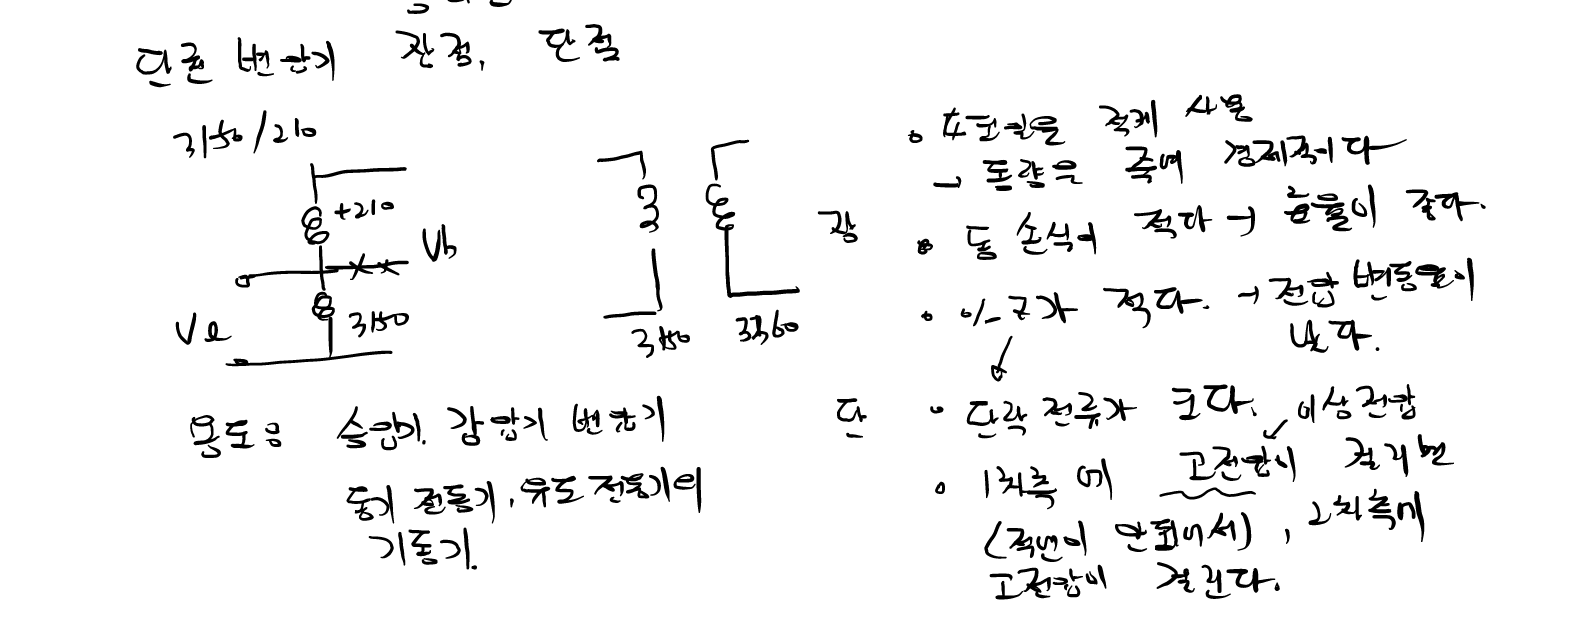 단권 변압기 장점, 단점
3150/210
+210
Vh
Vl
3150
3150
3360
용도 : 승압기. 감압기 변압기
동기 전동기, 유도 전동기의
기동기.
장
• 권선을 적게 사용
→ 동량을 줄여 경제적이다
• 동 손실이 적다 → 효율이 좋다.
• %Z가 적다. → 전압 변동율이
낮다.
단
• 단락 전류가 크다.
이상전압
• 1차측에 고전압이 걸리면
(절연이 안되어서), 2차측에
고전압이 걸린다.